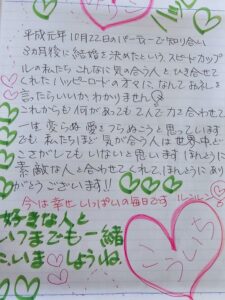 平成元年10月22日のパーティーで知り合い
3カ月後に結婚を決めたという、スピードカップ
ルの私たち こんなに気の合う人とひき合せて
くれた ハッピーロードの方々に、なんてお礼を
言ったらいいか わかりません
これからも何があっても 2人で力を合わせて
一生 変らぬ愛をつらぬこうと思っています
でも 私たちほど気が合う人は 世界中ど
こさがしてもいないと思います ほんとうに
素敵な人と合わせてくれて ほんとうにあり
がとうございます!!
今は幸せいっぱいの毎日です ルンルン
好きな人と
いつまでも一緒
にいましょうね
こういち